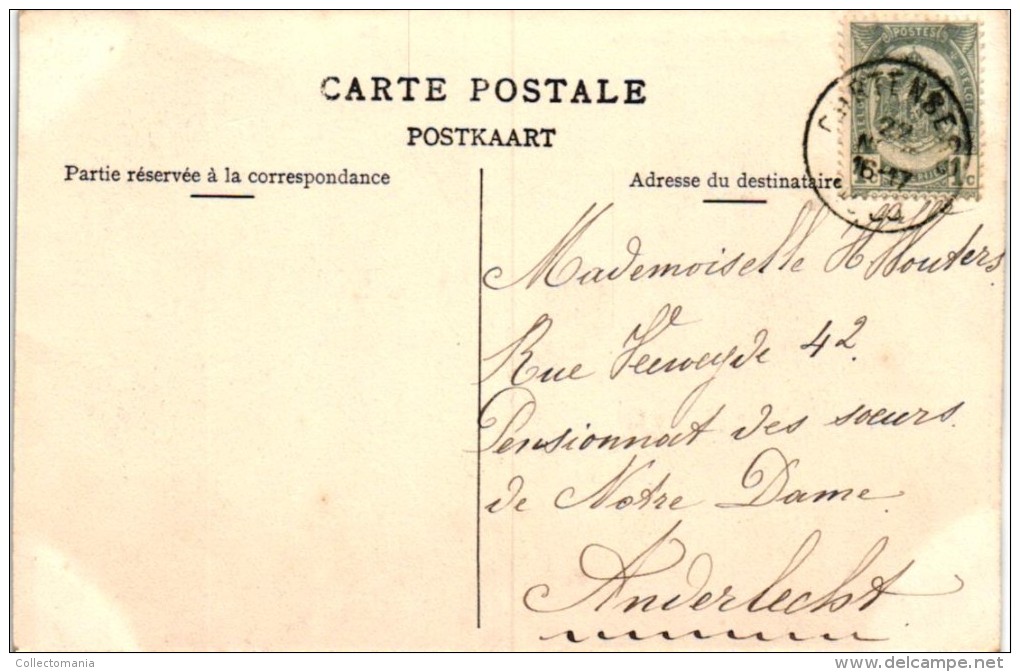 CARTE POSTALE
POSTKAART
Partie réservée à la correspondance
Adresse du destinataire
POSTES
1 C
22
16-17
Mademoiselle H Wouters
Rue Veeweyde 42
Pensionnat des soeurs
de Notre Dame
Anderlecht
Collectomania
delcampe.net